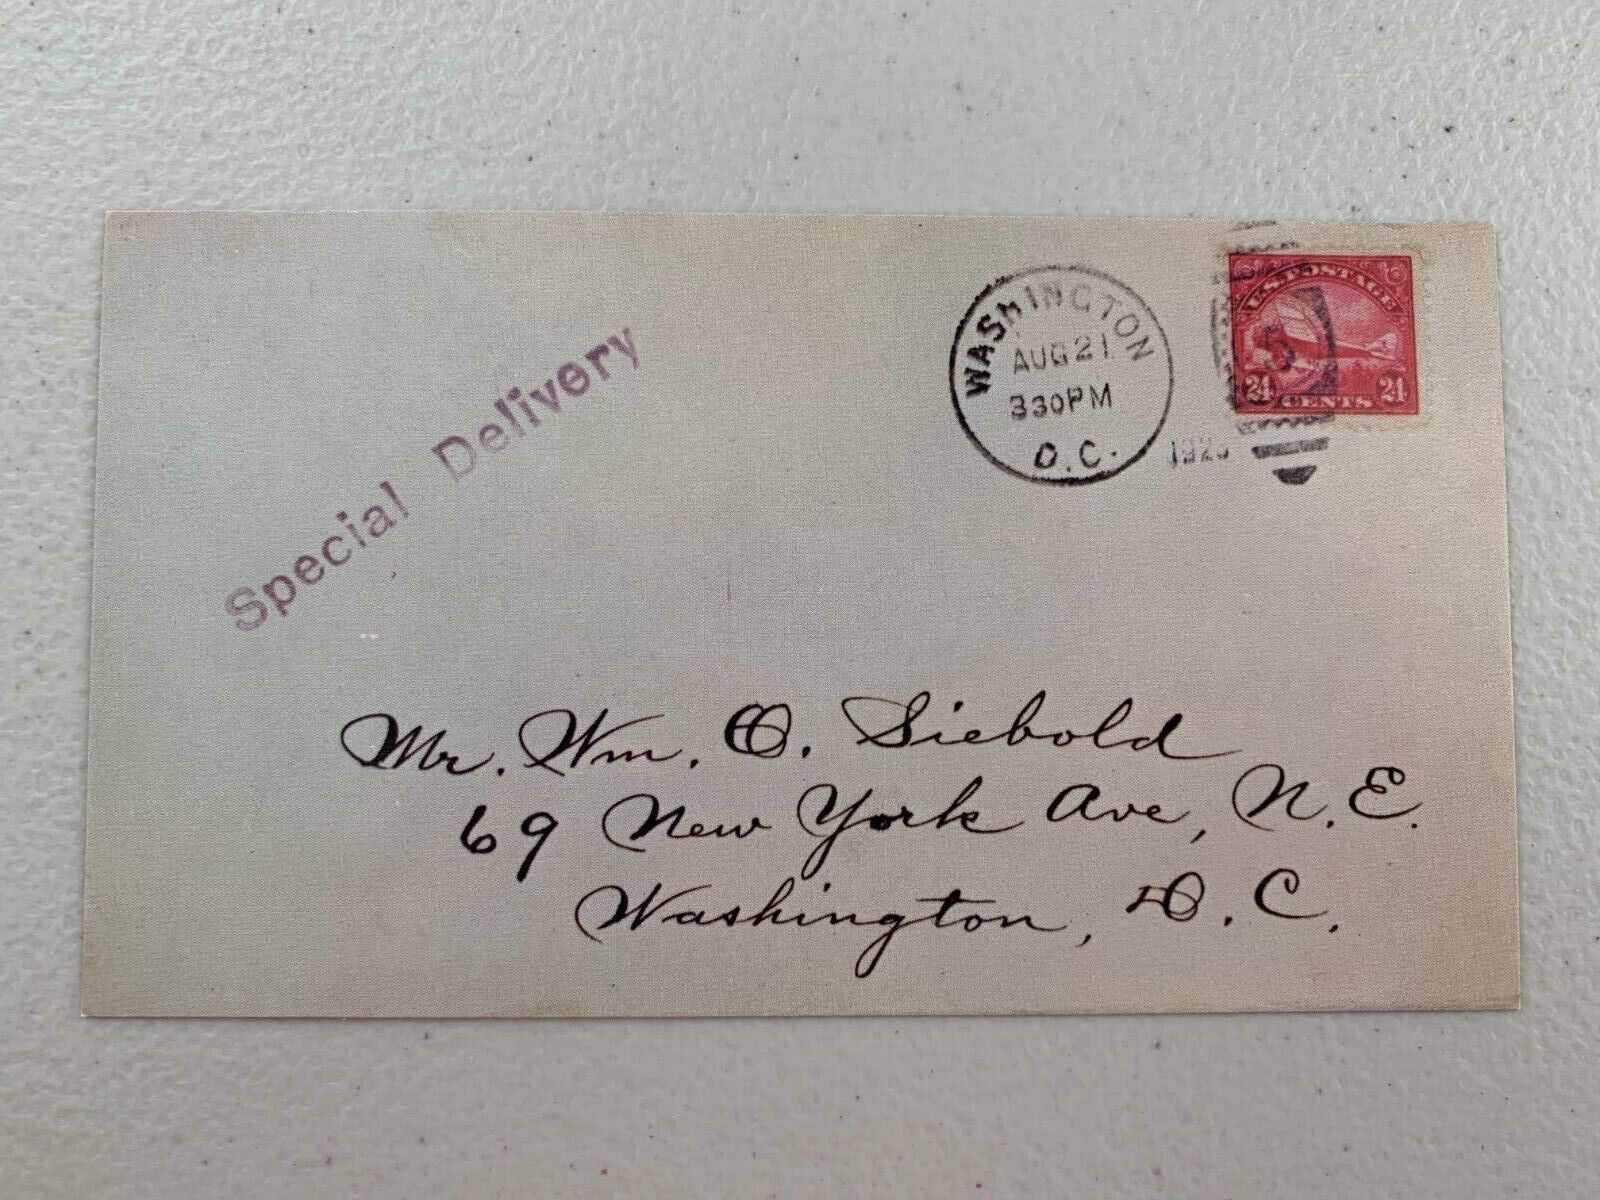 Special Delivery
WASHINGTON
AUG 21
330PM
D.C.
U.S. POSTAGE
5
24 CENTS 24
Mr. Wm. O. Siebold
69 New York Ave, N.E.
Washington, D.C.